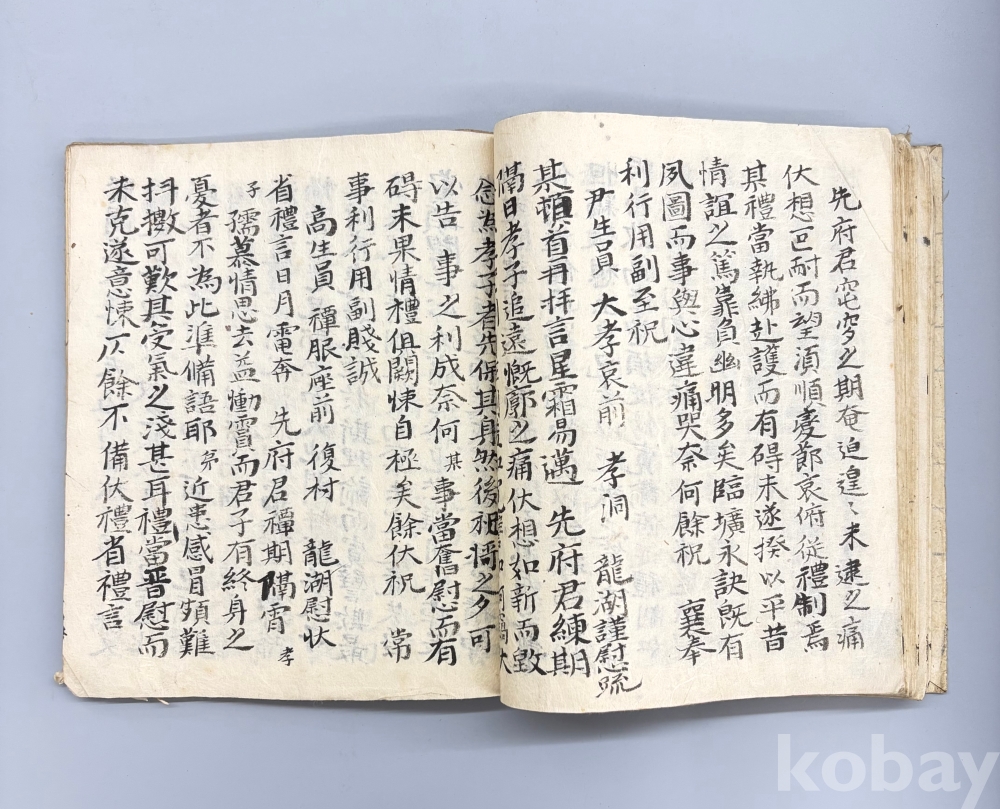 先府君窀穸之期奄迫遑〻未逮之痛
伏想叵耐而望須順變節哀俯從禮制焉
其禮當執紼赴護而有碍未遂揆以平昔
情誼之篤靠負幽明多矣臨壙永訣旣有
夙圖而事與心違痛哭奈何餘祝 襄奉
利行用副至祝
尹生員 大孝哀前 孝洞 龍湖謹慰疏
某頓首再拝言星霜易邁 先府君練期
隔日孝子追遠慨廓之痛伏想如新而毀
念為孝子者先保其身然後 之夕可
以告事之利成奈何某事當奮慰而有
碍未果情禮俱闕悚自極矣餘伏祝 常
事利行用副賤誠
高生員 禫服座前 復村 龍湖慰狀
省禮言日月電奔 先府君禫期隔宵孝
子孺慕情思去益慟霣而君子有終身之
憂者不為此準備語耶弟近患感冒頻難
抖擻可歎其受氣之淺甚耳禮當晋慰而
未克遂意悚仄餘不備伏禮省禮言
kobay